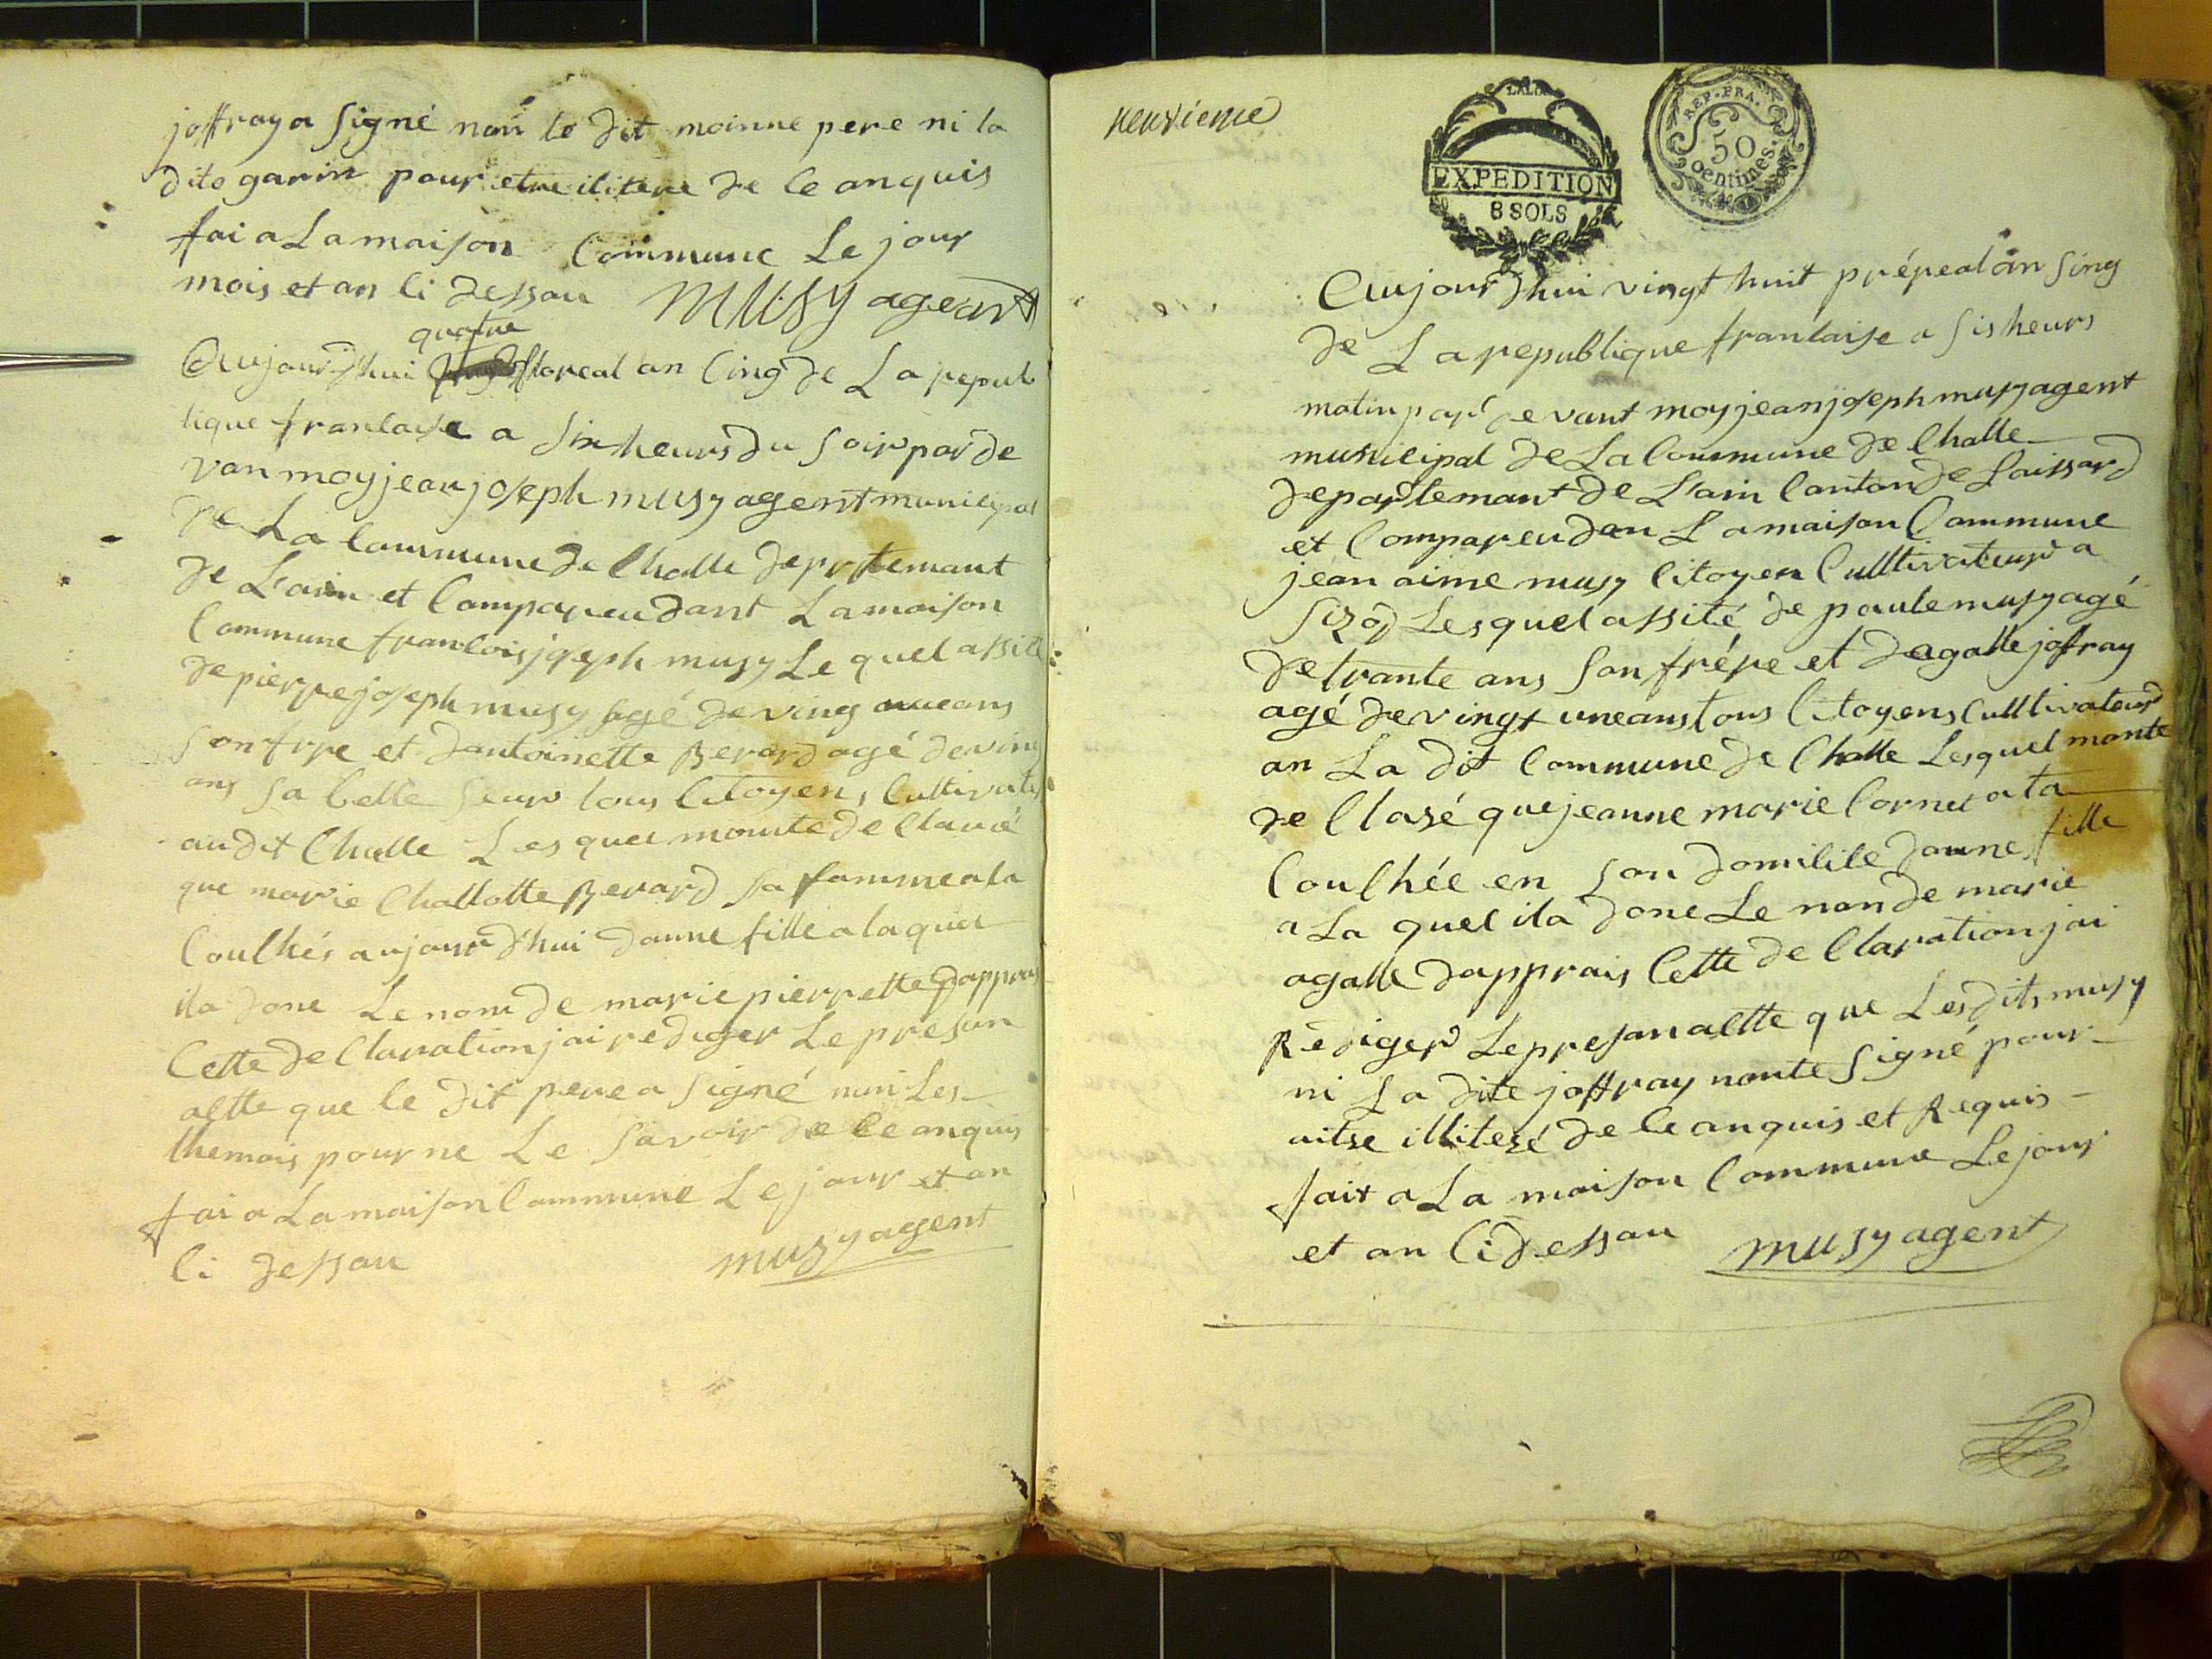 joffray a signé non le dit moinne pere ni la
dite garin pour etre ilitere de ce anquis
fai a La maison Commune Le jour
mois et an ci dessau musy agent
quatre
Aujourdhui floreal an cinq de La repub
lique francaise a six heurs du soir par de
van moy jean joseph musy agent municipal
de La Commune de Challe deprtemant
de L'ain et Compareu dant La maison
Commune francois joseph musy Le quel assité
de pierre joseph musy agé de ving ans
son frre et dantoinette Berard agé de ving
ans sa belle seur tous Citoyens Cultivate
audit Challe Les quel monte de claré
que marie Challotte Berard sa famme a la
Couchés aujourdhui danne fille a la quel
il a done Le nom de marie pierrette dappras
Cette de claration jai rediger Le presan
actte que le dit pere a signé non Les
themois pour ne Le savoir de ce anquis
fai a La maison Commune Le jour et an
ci dessau musy agent
neuvieme
LXLI
EXPEDITION
8 SOLS
REP. FRA.
50
Centimes.
Aujourdhui vingt huit prépeal an sinq
de La republique francaise a sis heurs
matin par de vant moy jean joseph musy agent
municipal de La Commune de Challe
departemant de L'ain Canton de Saissard
et Compareu dan La maison Commune
jean aime musy Citoyen Culltivateur a
Sizod Lesquel assité de paule musy agé
de trante ans son frére et dagatte joffray
agé de vingt une ans tous Citoyens Culltivateurd
an La dit Commune de Challe Lesquel monte
de Clasé que jeanne marie Cornet a ta
Couchée en son domicile danne fille
a La quel il a done Le non de marie
agatte dapprais Cette de Claration jai
Rédiger Le presan actte que Les dits musy
ni La dite joffray nonte signé pour
aitse illitesé de ce anquis et Requis
fait a La maison Commune Le jour
et an Ci dessau musy agent